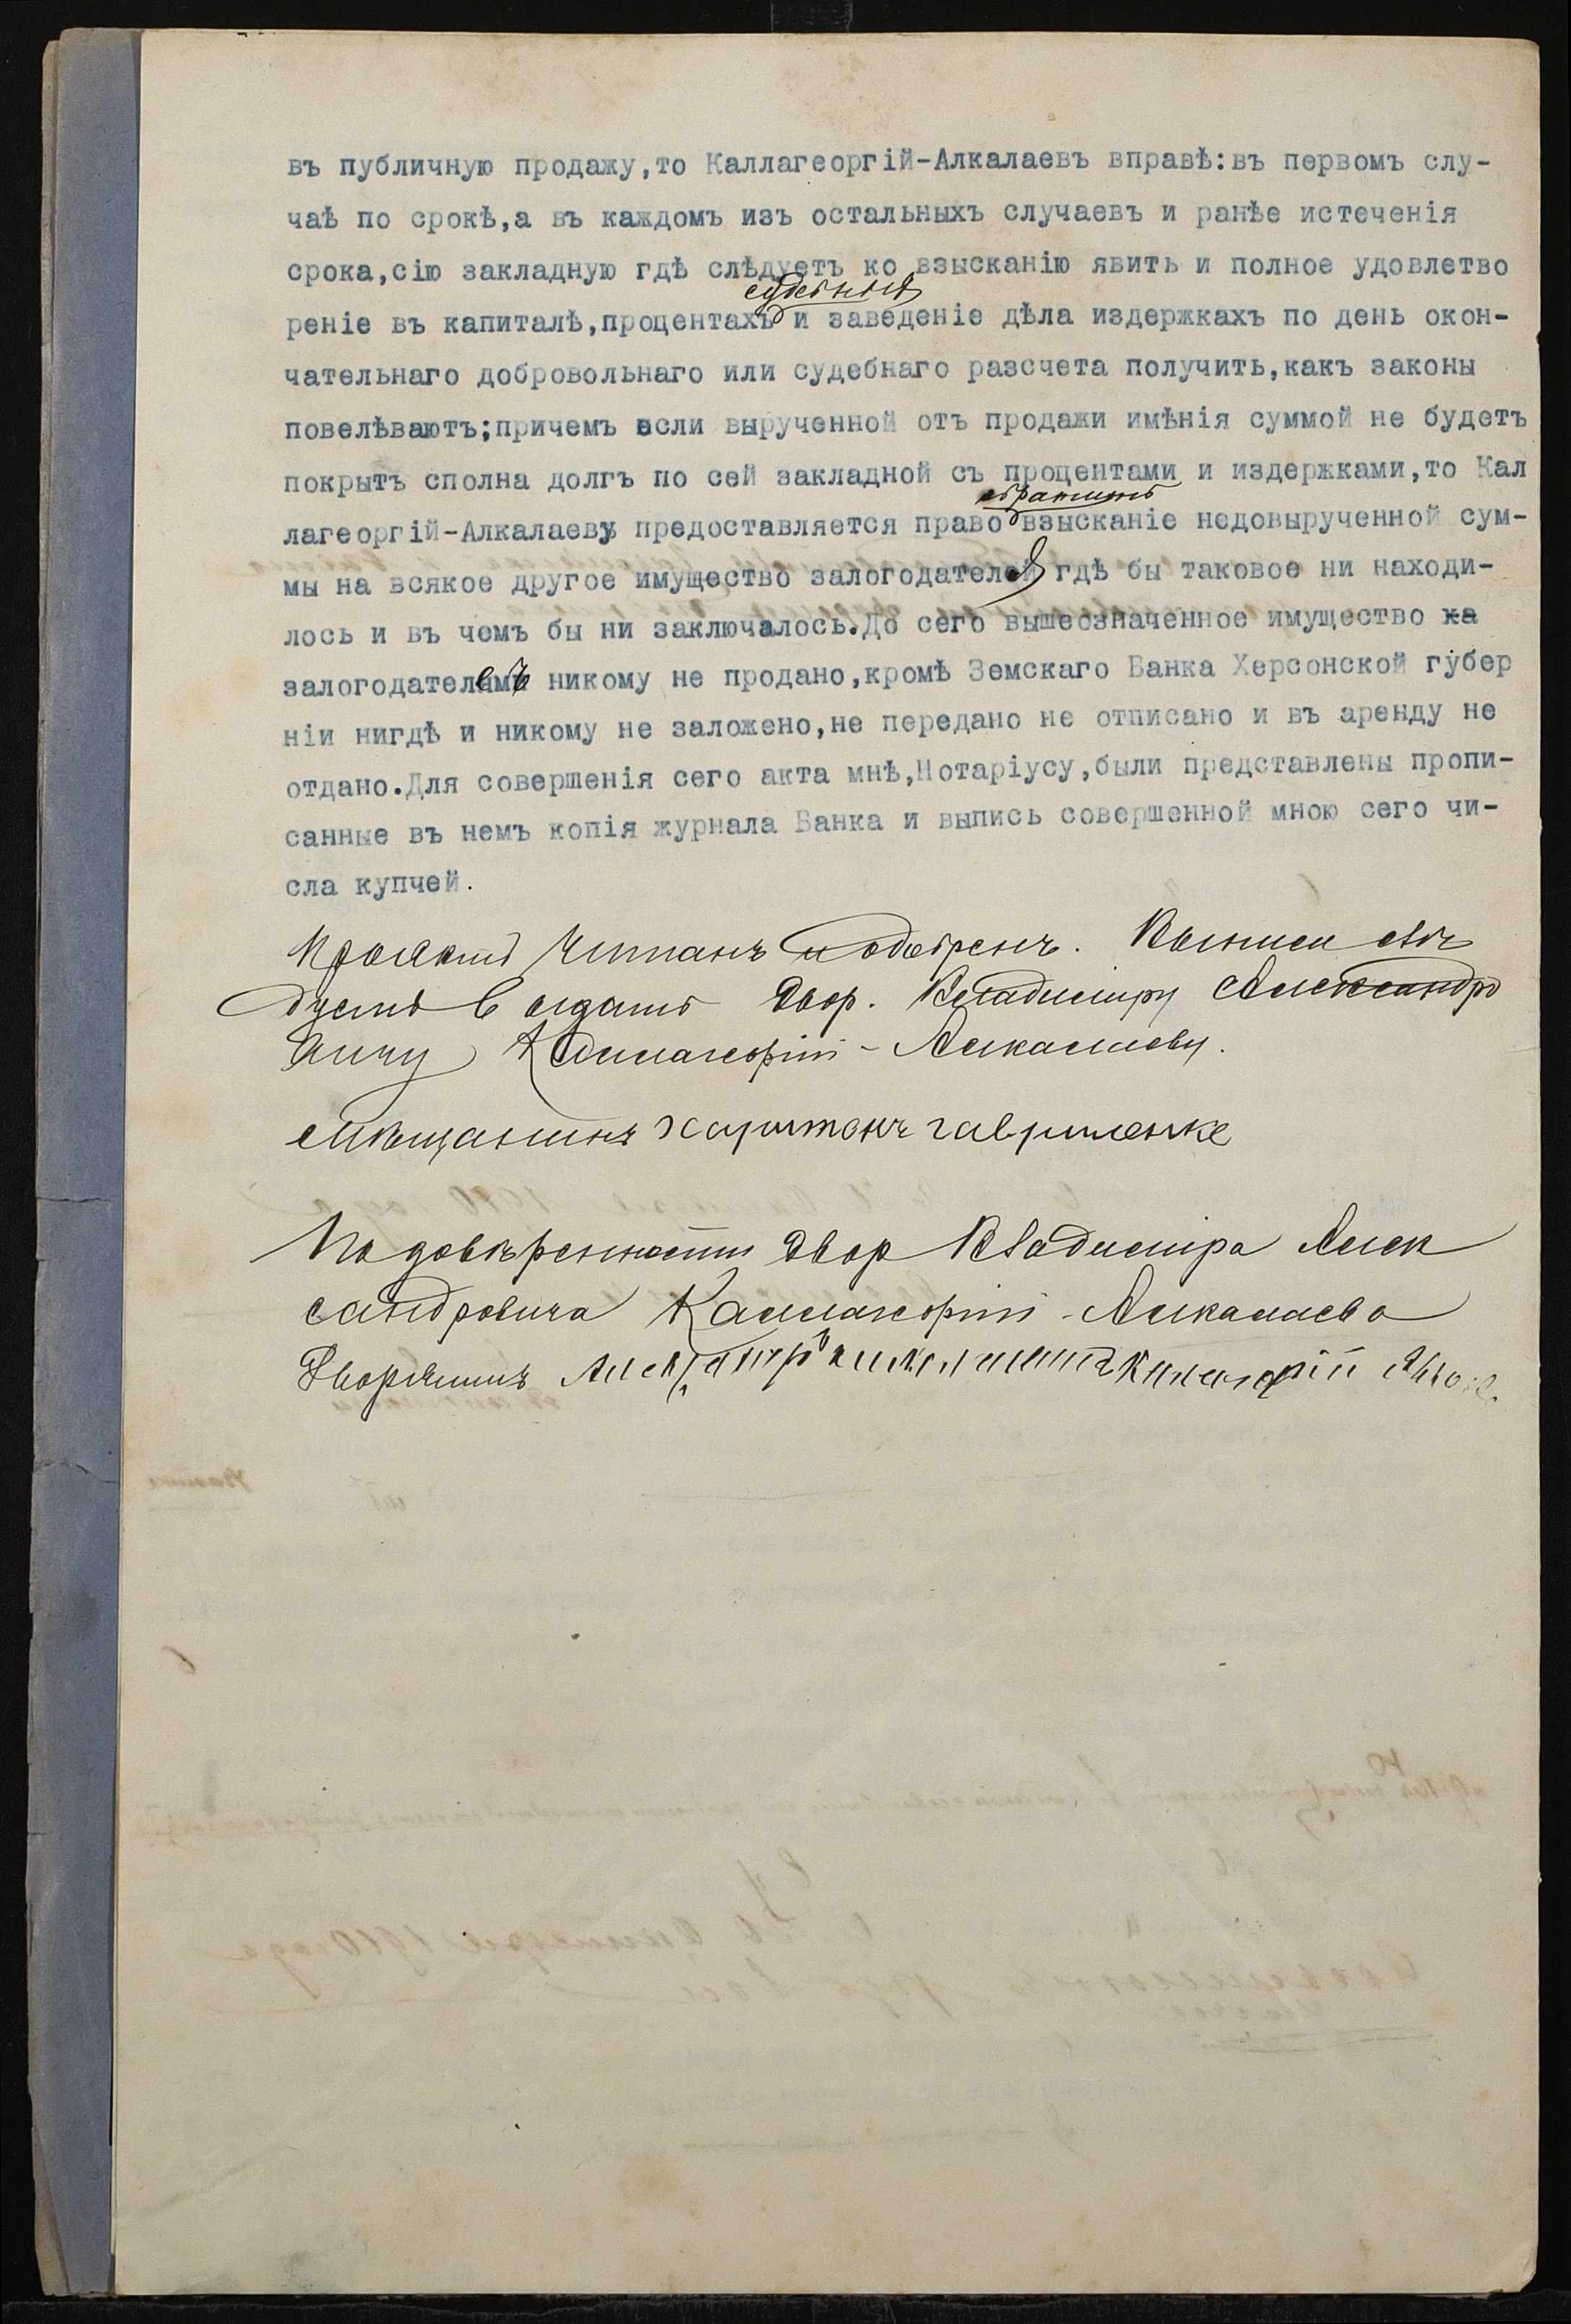 въ публичную продажу,то Каллагеоргій-Алкалаевъ вправѣ:въ первомъ слу-
чаѣ по срокѣ,а въ каждомъ изъ остальныхъ случаевъ и ранѣе истеченія
срока,сію закладную гдѣ слѣдуетъ ко взысканію явить и полное удовлетво
судебныхъ
реніе въ капиталѣ,процентахъ и заведеніе дѣла издержкахъ по день окон-
чательнаго добровольнаго или судебнаго разсчета получить,какъ законы
повелѣваютъ;причемъ если вырученной отъ продажи имѣнія суммой не будетъ
покрытъ сполна долгъ по сей закладной съ процентами и издержками,то Кал
обратить
лагеоргій-Алкалаеву предоставляется право взысканіе недовырученной сум-
мы на всякое другое имущество залогодателя гдѣ бы таковое ни находи-
лось и въ чемъ бы ни заключалось.До сего вышеозначенное имущество ха
залогодателемъ никому не продано,кромѣ Земскаго Банка Херсонской губер
ніи нигдѣ и никому не заложено,не передано не отписано и въ аренду не
отдано.Для совершенія сего акта мнѣ,Нотаріусу,были представлены пропи-
санные въ немъ копія журнала Банка и выпись совершенной мною сего чи-
сла купчей.
Проектъ читанъ и одобренъ. Выпись слѣ
дуетъ выдать Двор. Владиміру Александро
вичу Каллагеоргій-Алкалаеву.
Мѣщанинъ Харитонъ Гавриленко
По довѣренности Двор Владиміра Алек
сандровича Каллагеоргій-Алкалаева
Дворянинъ Александръ Каллагеоргій